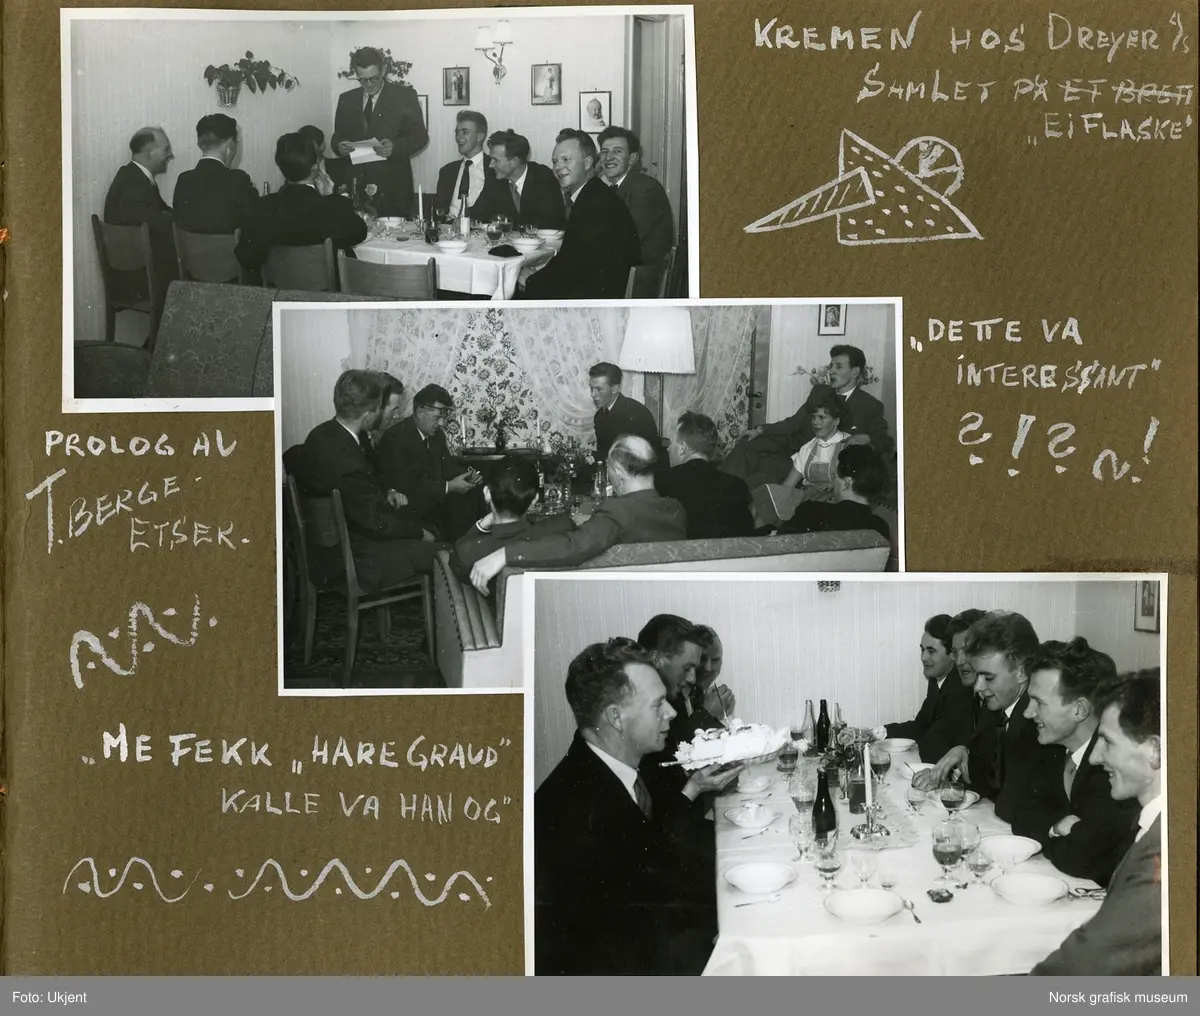 KREMEN HOS DREYER A/S
SAMLET PÅ ET BRETT
„EI FLASKE"
„DETTE VA
INTERESSANT"
?!?~!
PROLOG AV
T. BERGE-
ETSER.
„ME FEKK „HAREGRAUD"
KALLE VA HAN OG"
Foto: Ukjent
Norsk grafisk museum